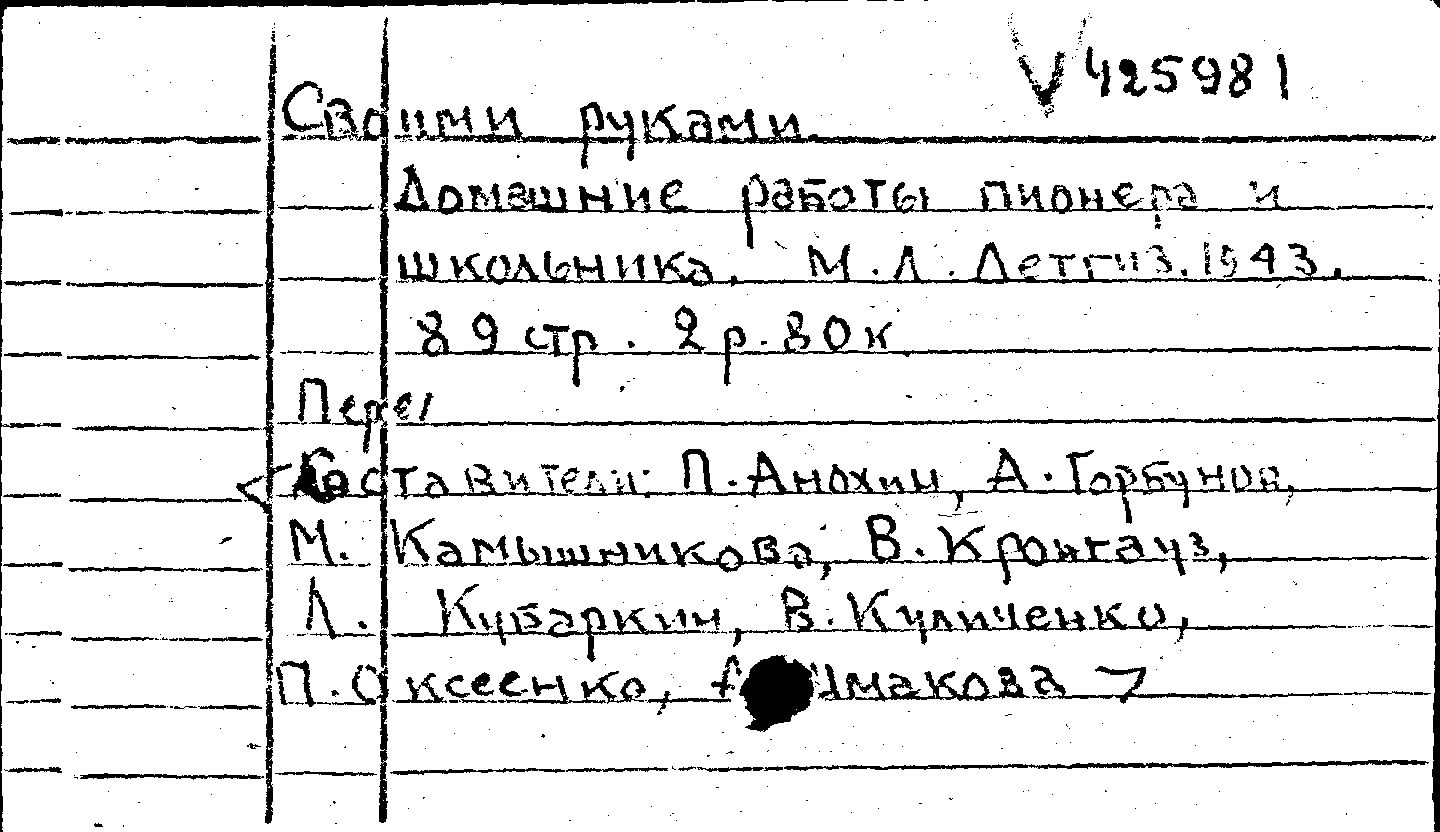 V 425981
Своими руками.
Домашние работы пионера и
школьника. М.Л. Детгиз. 1943.
89 стр. 2 р. 80 к
Перел
<Составители: П. Анохин, А. Горбунов,
М. Камышникова, В. Кронгауз,
Л. Кубаркин, В. Куличенко,
П. Оксеенко, >